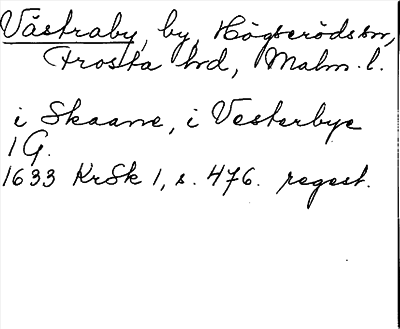 Västraby, by, Högseröds sn,
Frosta hd, Malm. l.
i Skaane, i Vesterbye
1 G.
1633 KrSk 1, s. 476. regest.